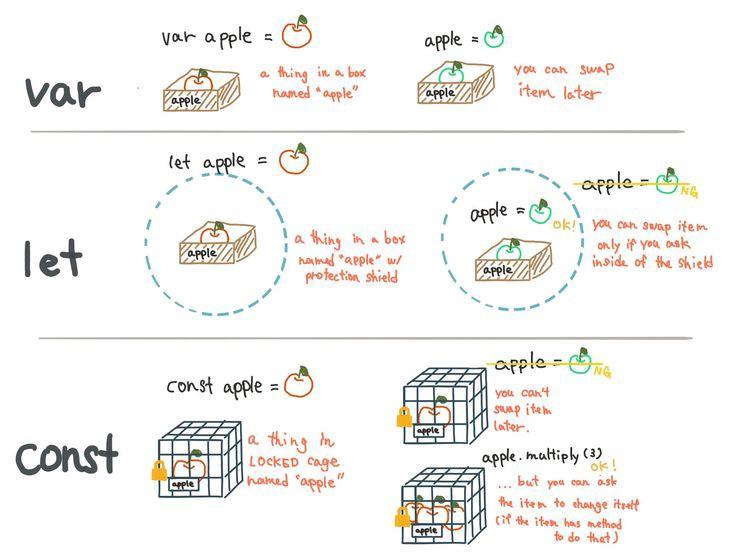 var
var apple =
apple
a thing in a box
named "apple"
apple =
apple
you can swap
item later
let
let apple =
apple
a thing in a box
named "apple" w/
protection shield
apple =
NG
apple =
OK!
apple
you can swap item
only if you ask
inside of the shield
const
const apple =
apple
a thing in
LOCKED cage
named "apple"
apple =
NG
apple
you can't
swap item
later.
apple.multiply(3)
OK!
apple
...but you can ask
the item to change itself
(if the item has method
to do that)